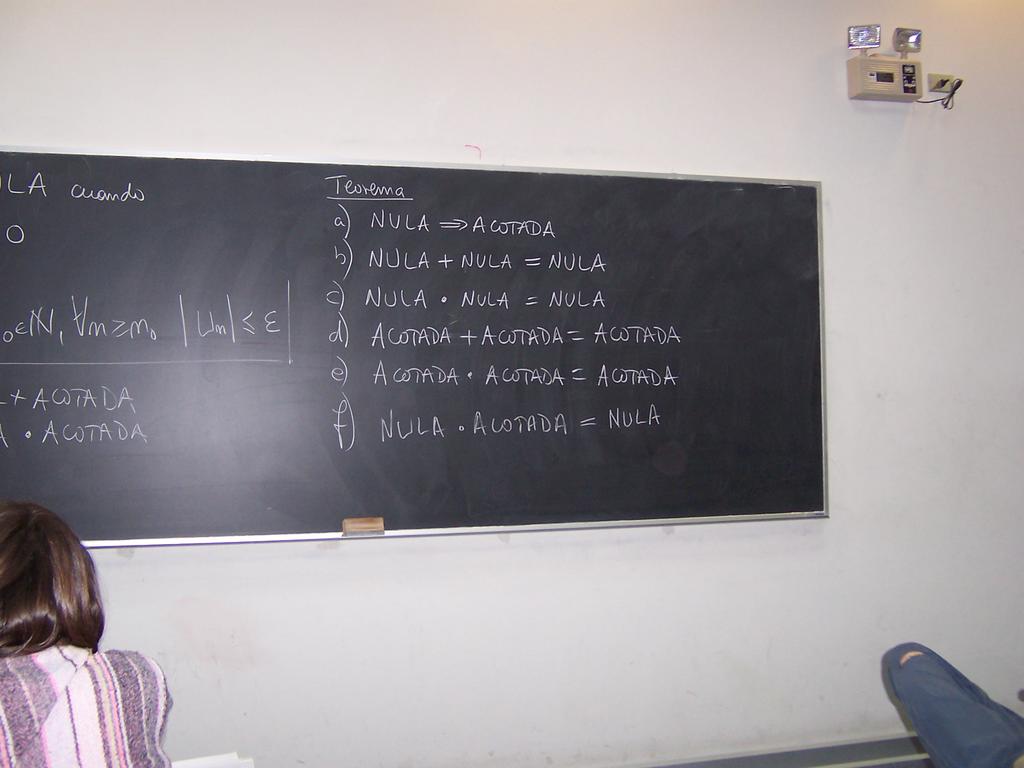 ULA cuando
0
₀∈ℕ, ∀n≥n₀ |Un| ≤ ε
+ ACOTADA
A · ACOTADA
Teorema
a) NULA ⇒ ACOTADA
b) NULA + NULA = NULA
c) NULA · NULA = NULA
d) ACOTADA + ACOTADA = ACOTADA
e) ACOTADA · ACOTADA = ACOTADA
f) NULA · ACOTADA = NULA